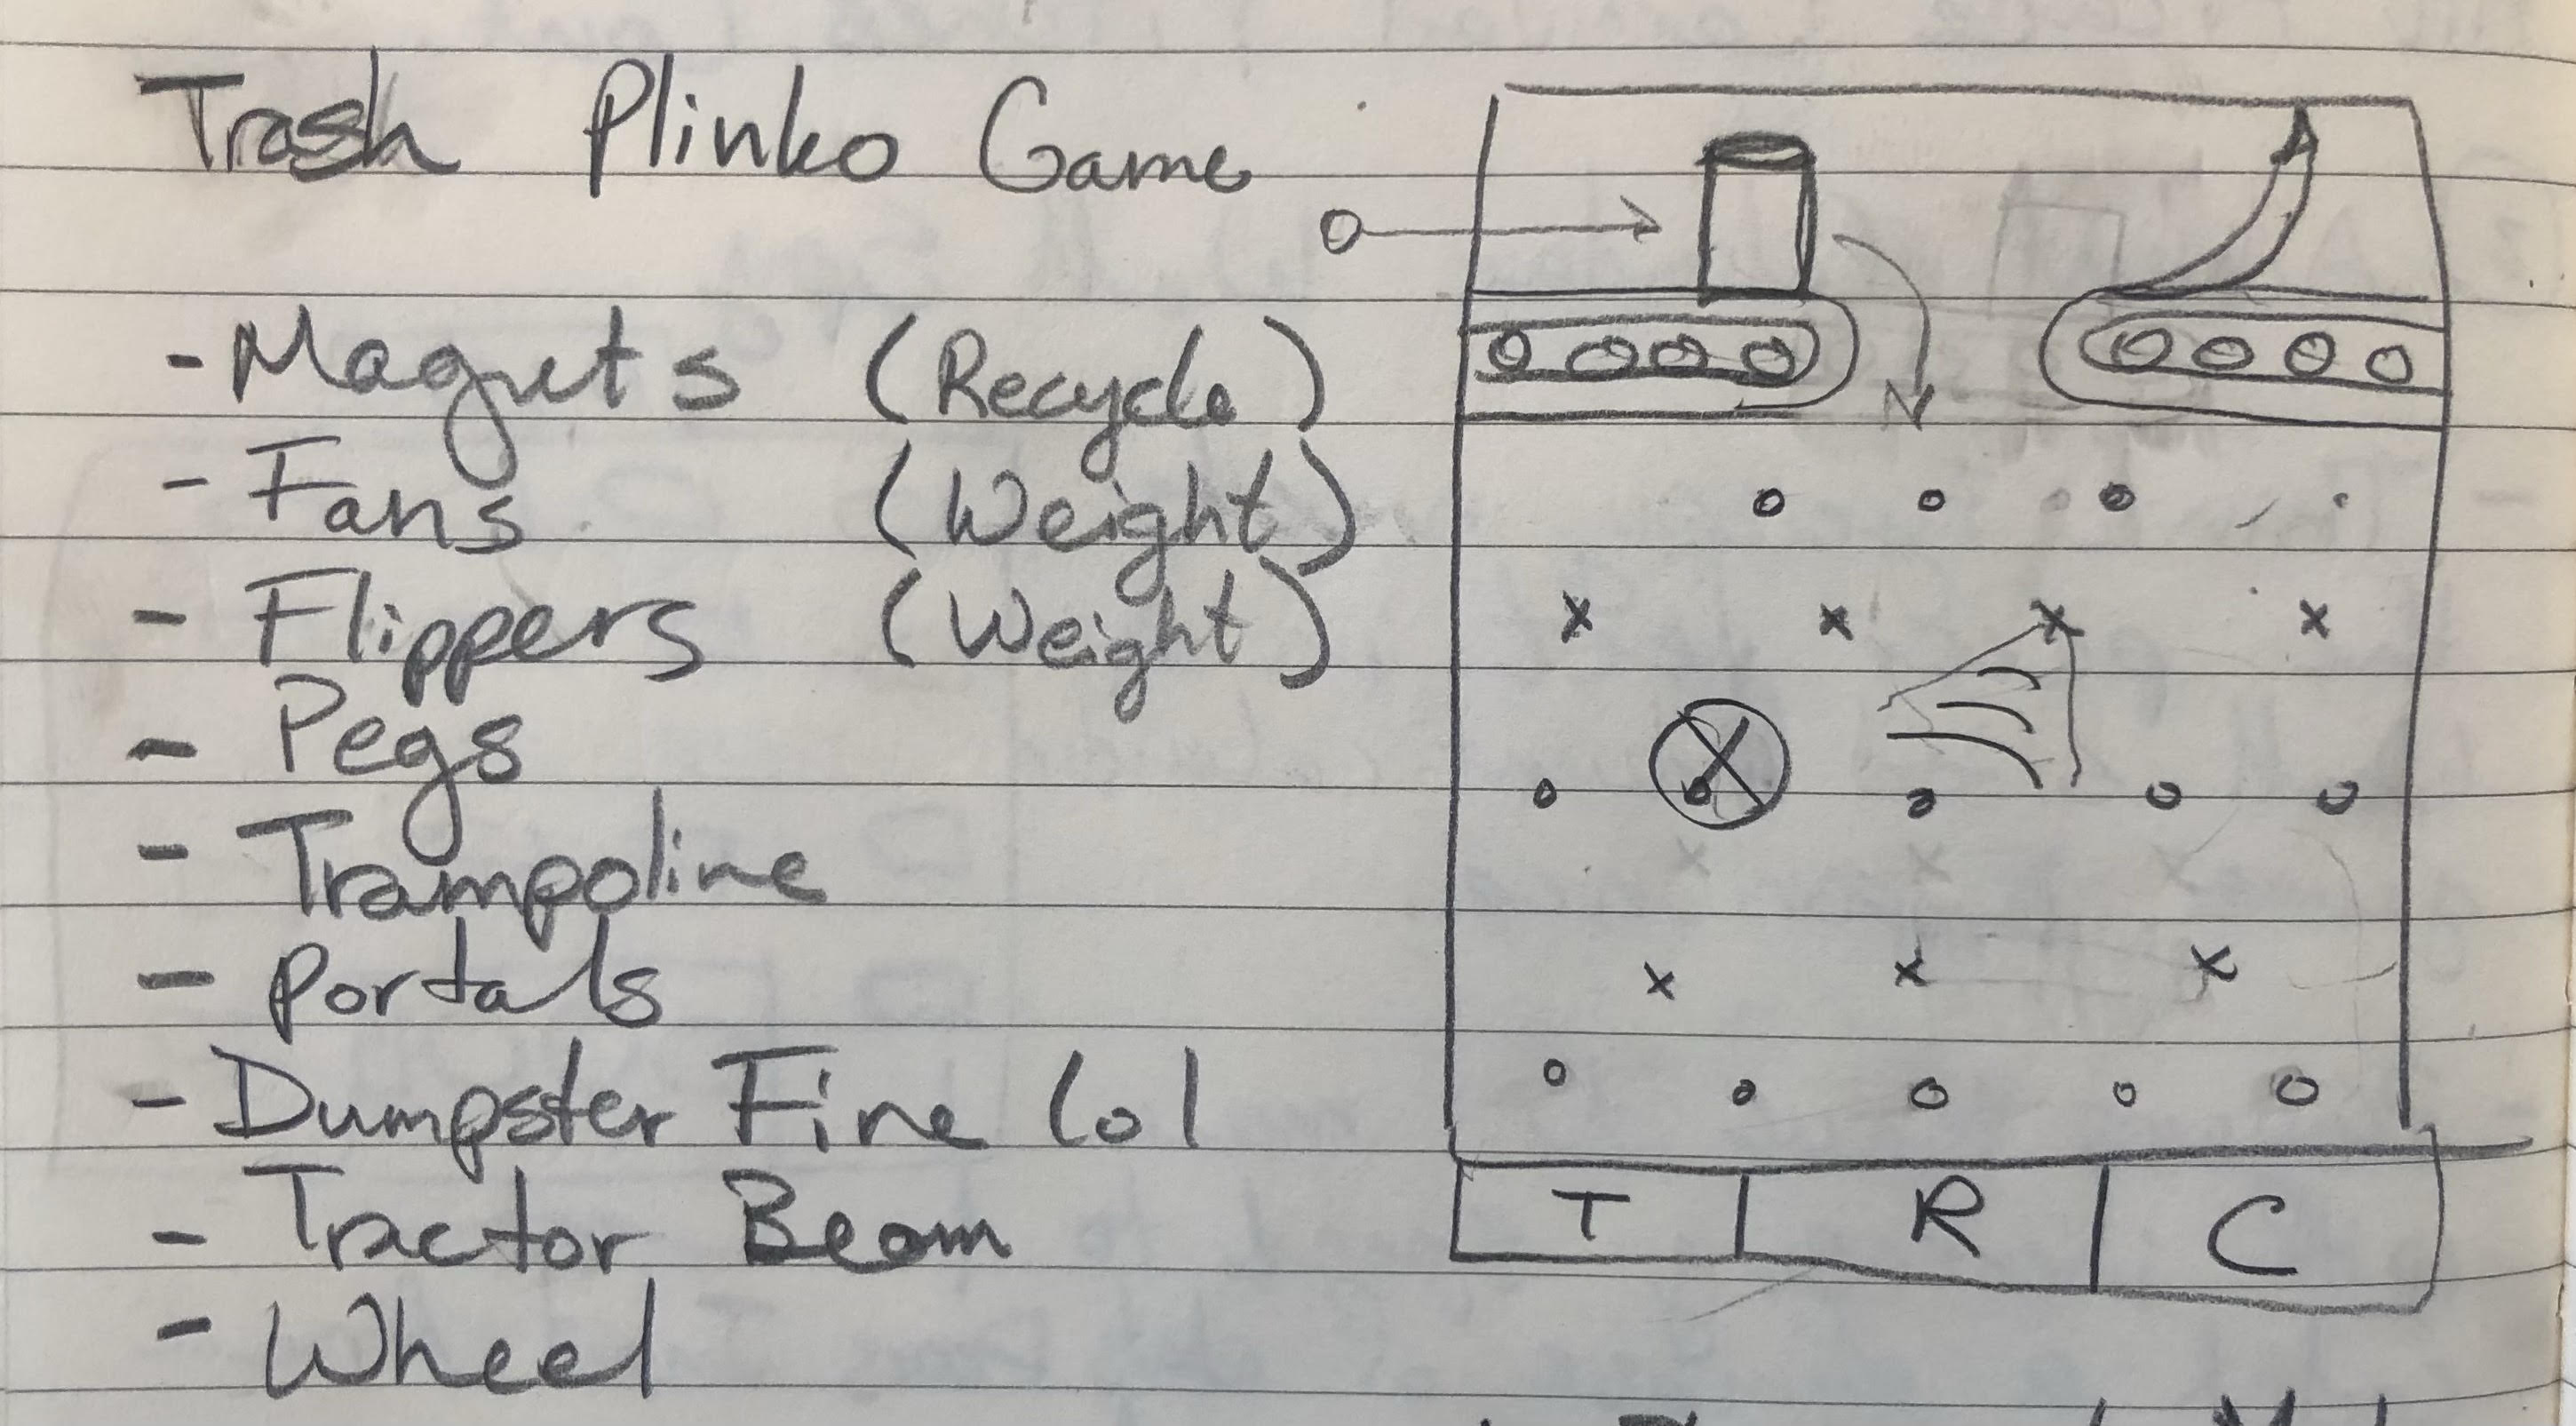 Trash Plinko Game
- Magnets (Recycle)
- Fans (Weight)
- Flippers (Weight)
- Pegs
- Trampoline
- Portals
- Dumpster Fire lol
- Tractor Beam
- Wheel
T R C